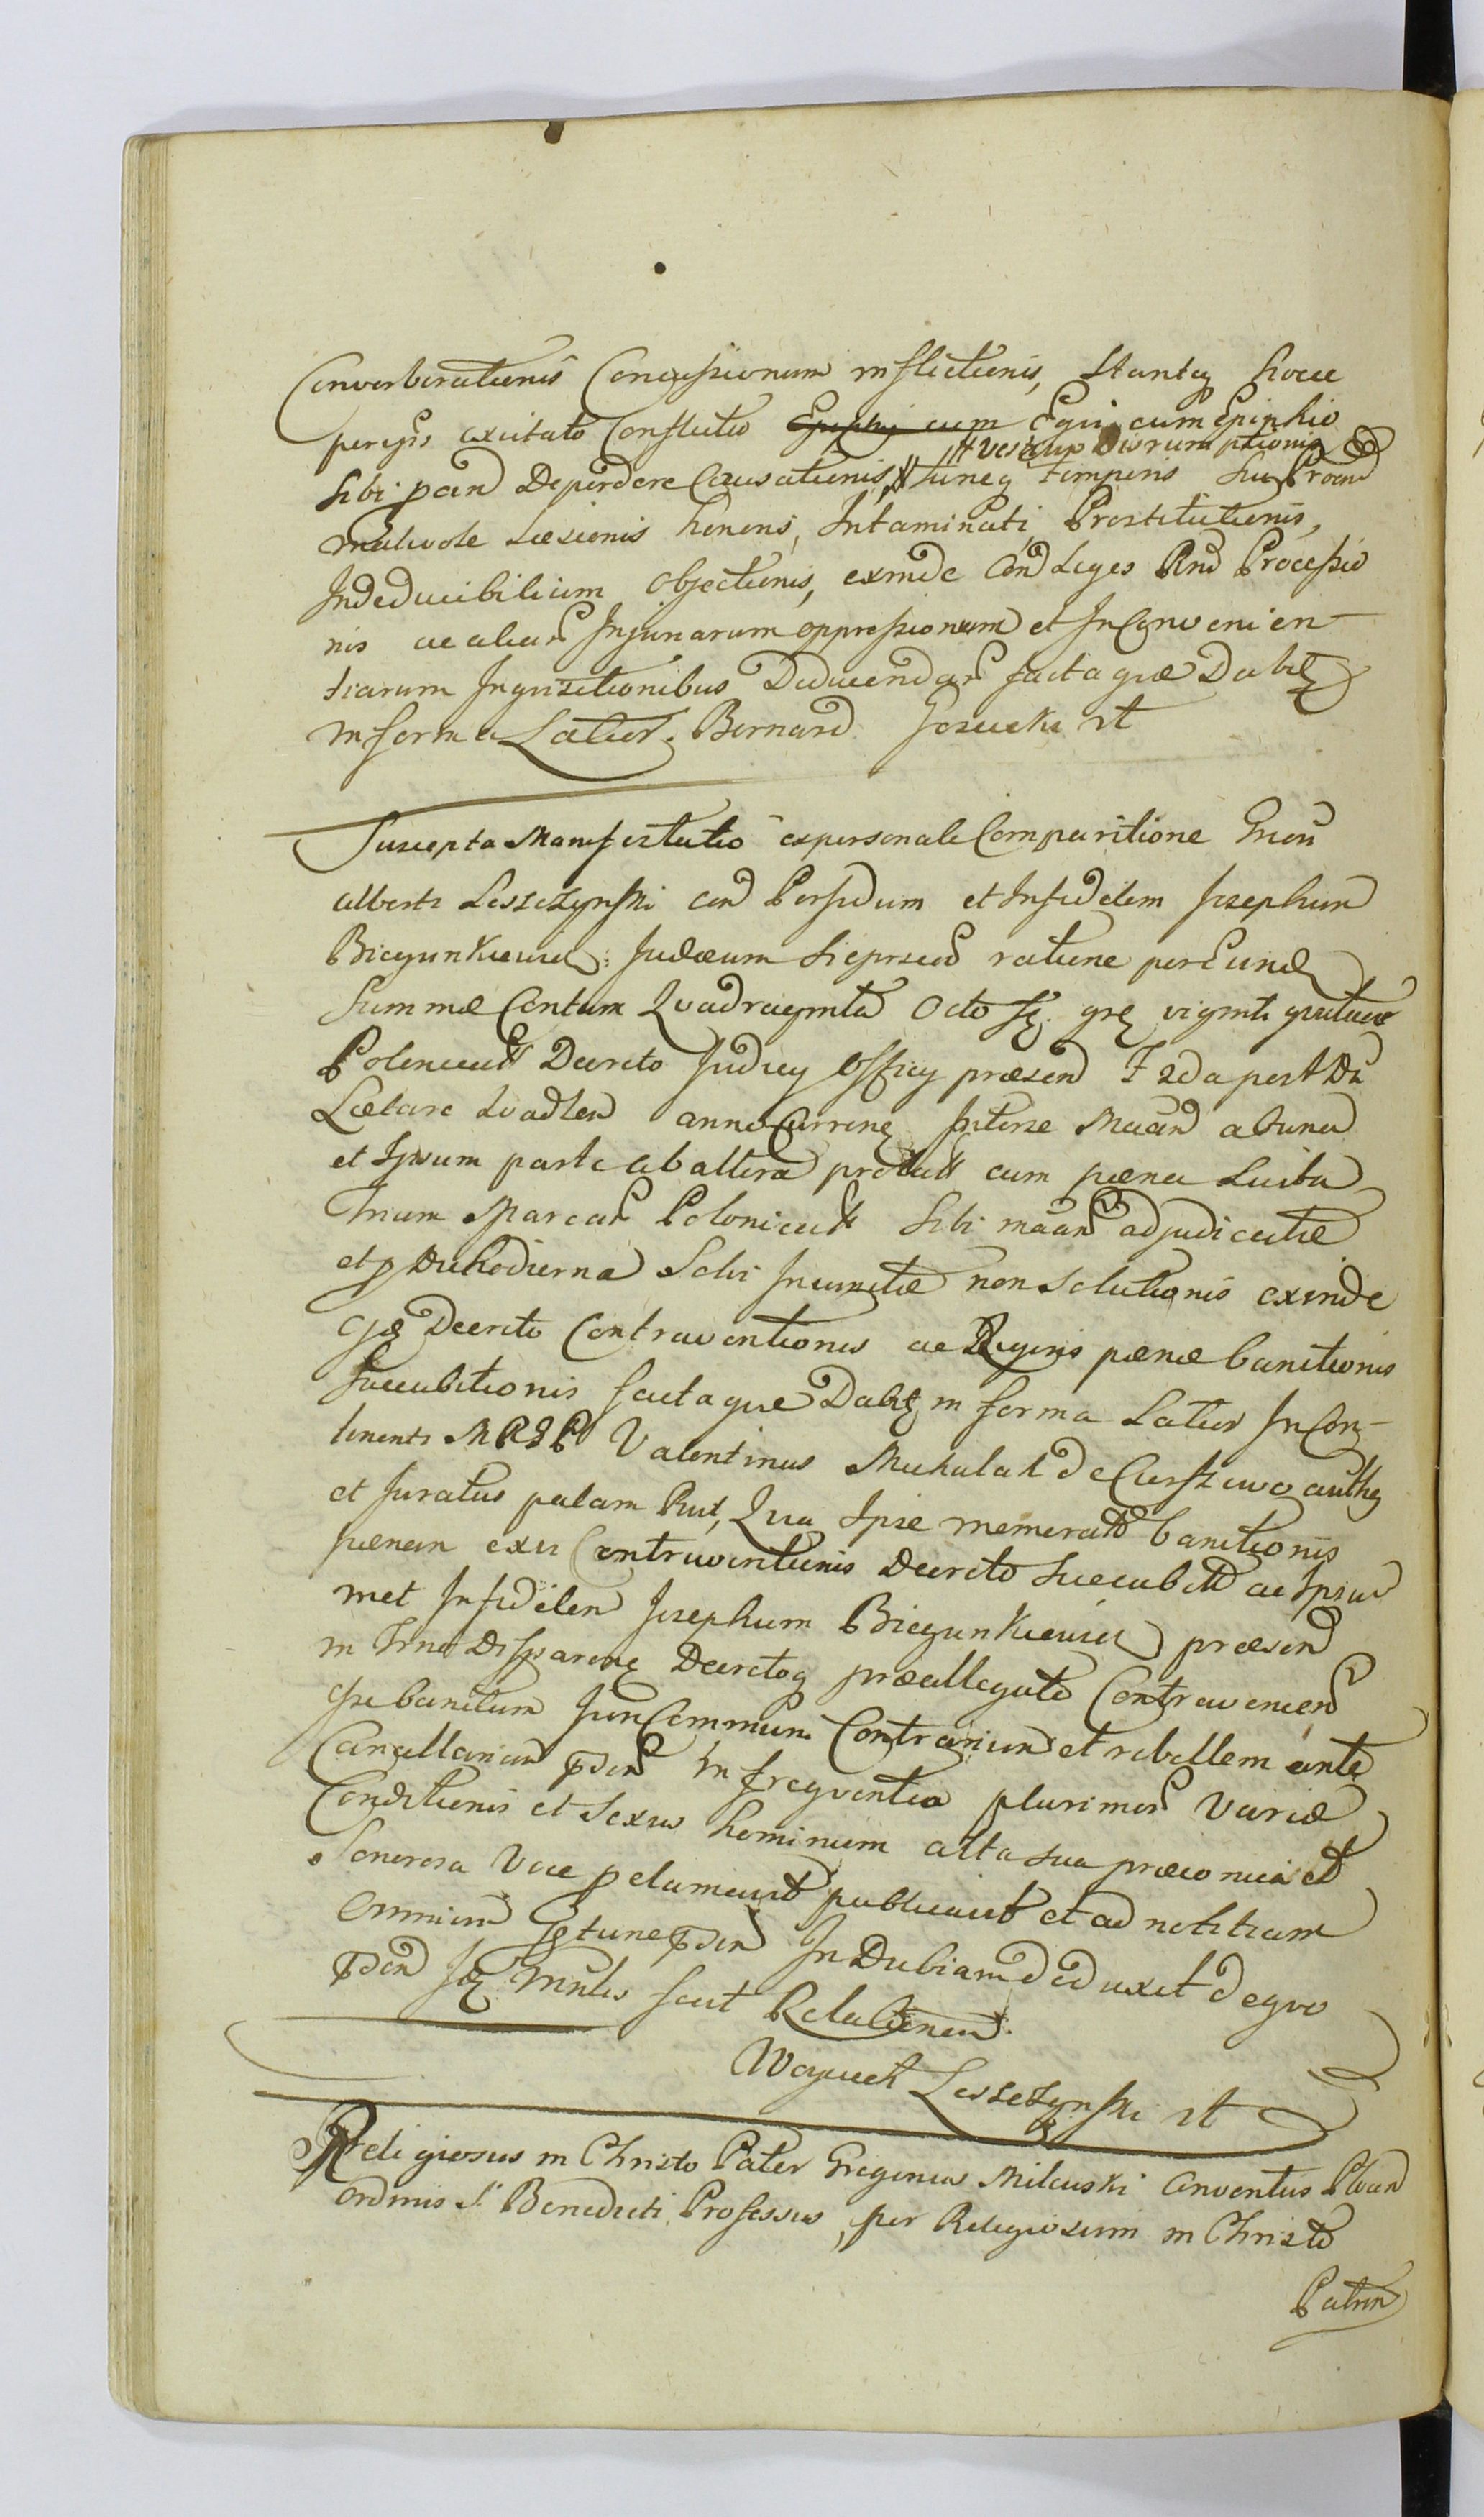 Conversberationis Concussionum inflictionis, Stanteq hocce
per eysis excitato Conflictu Ephiphij cum Equi cum Epiphio
# Vestium Disrumptionis
Sibi pan Deperdere Causationis, # tuneq temporis sui Pran
malivole Læsionis honoris, Intaminati, Prostitutionis,
Indeducibilium Objectionis, exinde Con Leges Rnd Processio
nis ac aliar Injuriarum oppressionum et Inconvenien
tiarum Inquisitionibus Deducendar facta quæ Dabit
in forma Latior. Bernard mt
Suscepta Manifestatio ex personali Comparitione Gnosi
Alberti Leszczynski con Perfidum et Infidelem Josephum
Biegunkiewicz Judæum Sieprscen ratione per Eund
Summæ Centum Quadraginta Octo fl. grs viginti quatuor
Polonical Decreto Judicy Officy præsen F 2da post Dn
Lætare Quadlen anno Curren Interse Maan ab una
et Ipsum parte ab altera prolatt cum pæna Luita
trium Marcar Polonicalt Sibi maan adjudicatæ
et p Die hodierna Solvi Iniunctæ non Solutionis exinde
Decreto Contraventionis ac Reginis pænæ banitionis
Succubitionis facta quæ Dabit in forma Latior In Con
tinenti MRSR Valentinus Michalak de authen
et Juratus palam Rut, Qua Ipse memoratt banitionis
pænam exu Contraventionis Decreto Succubitt ac Ipsum
met Infidelem Josephum Biegunkiewicz præsen
in trno Disparene Decretoq præallegato Contravenien
Ipse banitum Juri Communi Contrarium et rebellem ante
Cancellariam pden in frequentia plurimor Variæ
Conditionis et Sexus hominum alta sua præconica et
Sonorosa Voce pclamavit publicavit et ad notitiam
Omnium Ibq tuneq pden In Dubiam deduxit de quo
pden Idq Mnlis fecit Relationem.
Woyciech Leszczynski mt
Religiosus in Christo Pater Gregorius Milewski Conventus Plocen
Ordinis S. Benedicti Professus, per Religiosum in Christo
Patrem